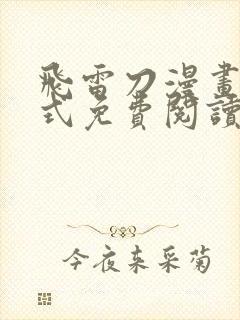 飛雷刀漫畫
式免費閱讀
今夜来采菊